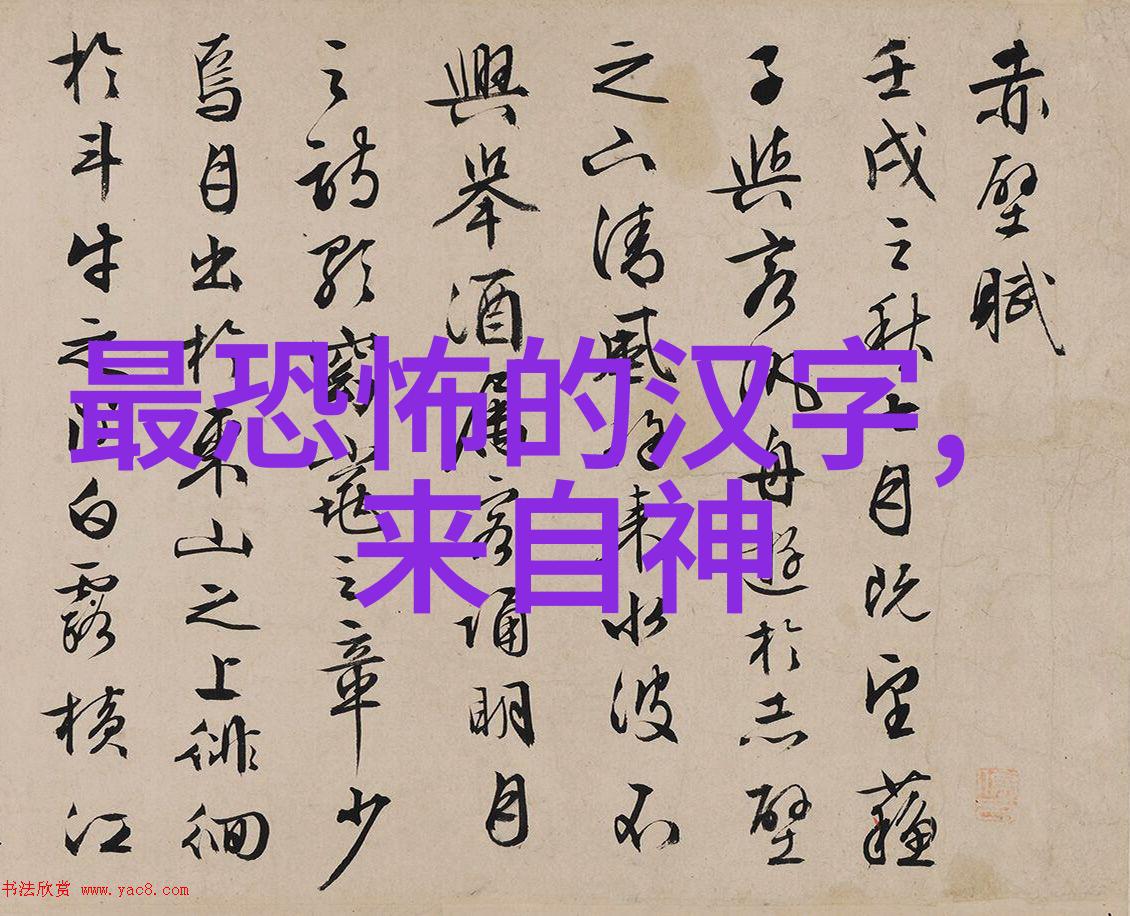 赤壁賦
壬戌之秋七月既望蘓
子與客泛舟遊於赤壁
之下清風徐來水波不
興舉酒屬客誦明月
之詩歌窈窕之章少
焉月出於東山之上徘徊
於斗牛之間白露橫江
最恐怖的汉字，
来自神
书法欣赏 www.yac8.com